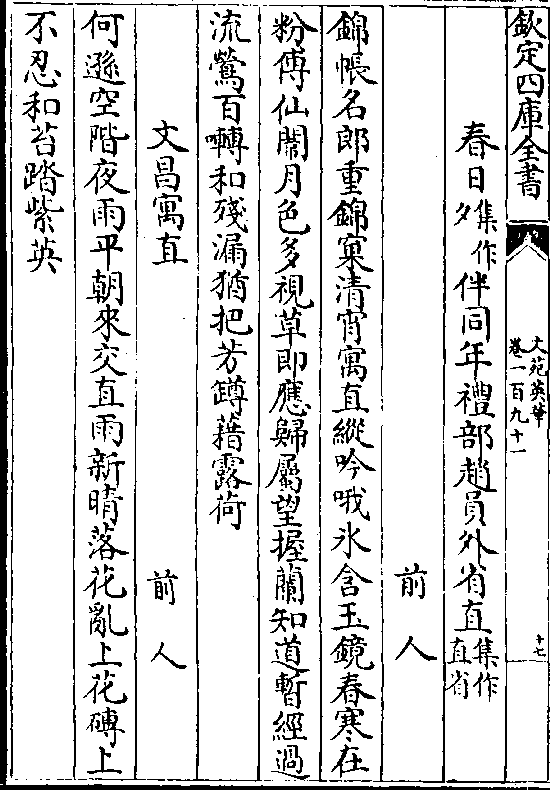 欽定四庫全書
文苑英華
卷一百九十一
十七
春日集作夕伴同年禮部趙員外省直集作直省
前人
錦帳名郎重錦窠清宵寓直縱吟哦氷含玉鏡春寒在
粉傅仙闈月色多視草即應歸屬望握蘭知道暫經過
流鶯百囀和殘漏猶把芳罇藉露荷
文昌寓直 前人
何遜空階夜雨平朝來交直雨新晴落花亂上花磚上
不忍和苔踏紫英